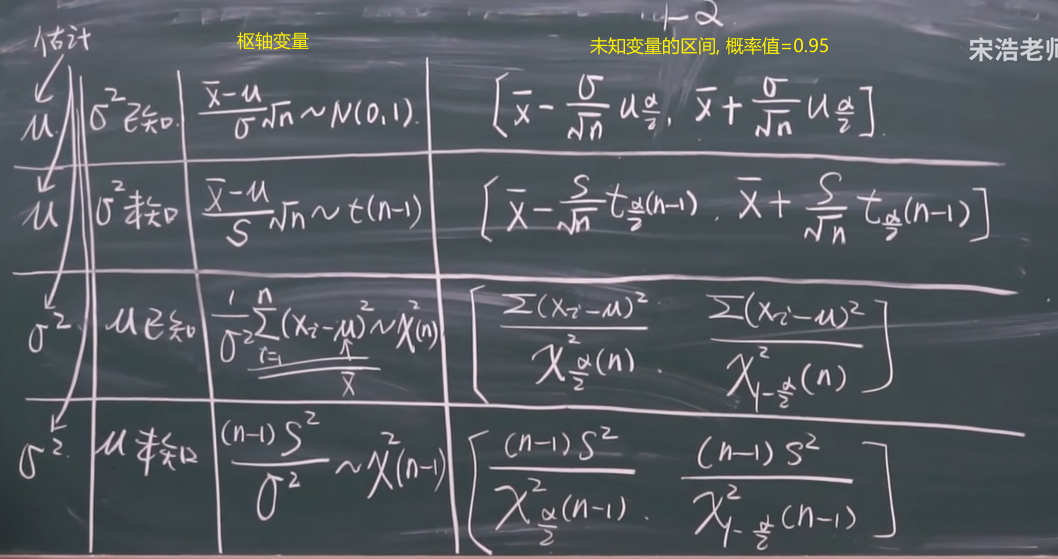 1-α
估计
枢轴变量
未知变量的区间, 概率值=0.95
宋浩老师
μ σ²已知 (x̄-μ)/σ √n ~ N(0,1) [x̄ - σ/√n u_{α/2}, x̄ + σ/√n u_{α/2}]
μ σ²未知 (x̄-μ)/S √n ~ t(n-1) [x̄ - S/√n t_{α/2}(n-1), x̄ + S/√n t_{α/2}(n-1)]
σ² μ已知 1/σ² Σ_{i=1}^{n} (x_i-μ)² ~ χ²(n) [Σ(x_i-μ)²/χ²_{α/2}(n), Σ(x_i-μ)²/χ²_{1-α/2}(n)]
x̄
σ² μ未知 (n-1)S²/σ² ~ χ²(n-1) [(n-1)S²/χ²_{α/2}(n-1), (n-1)S²/χ²_{1-α/2}(n-1)]